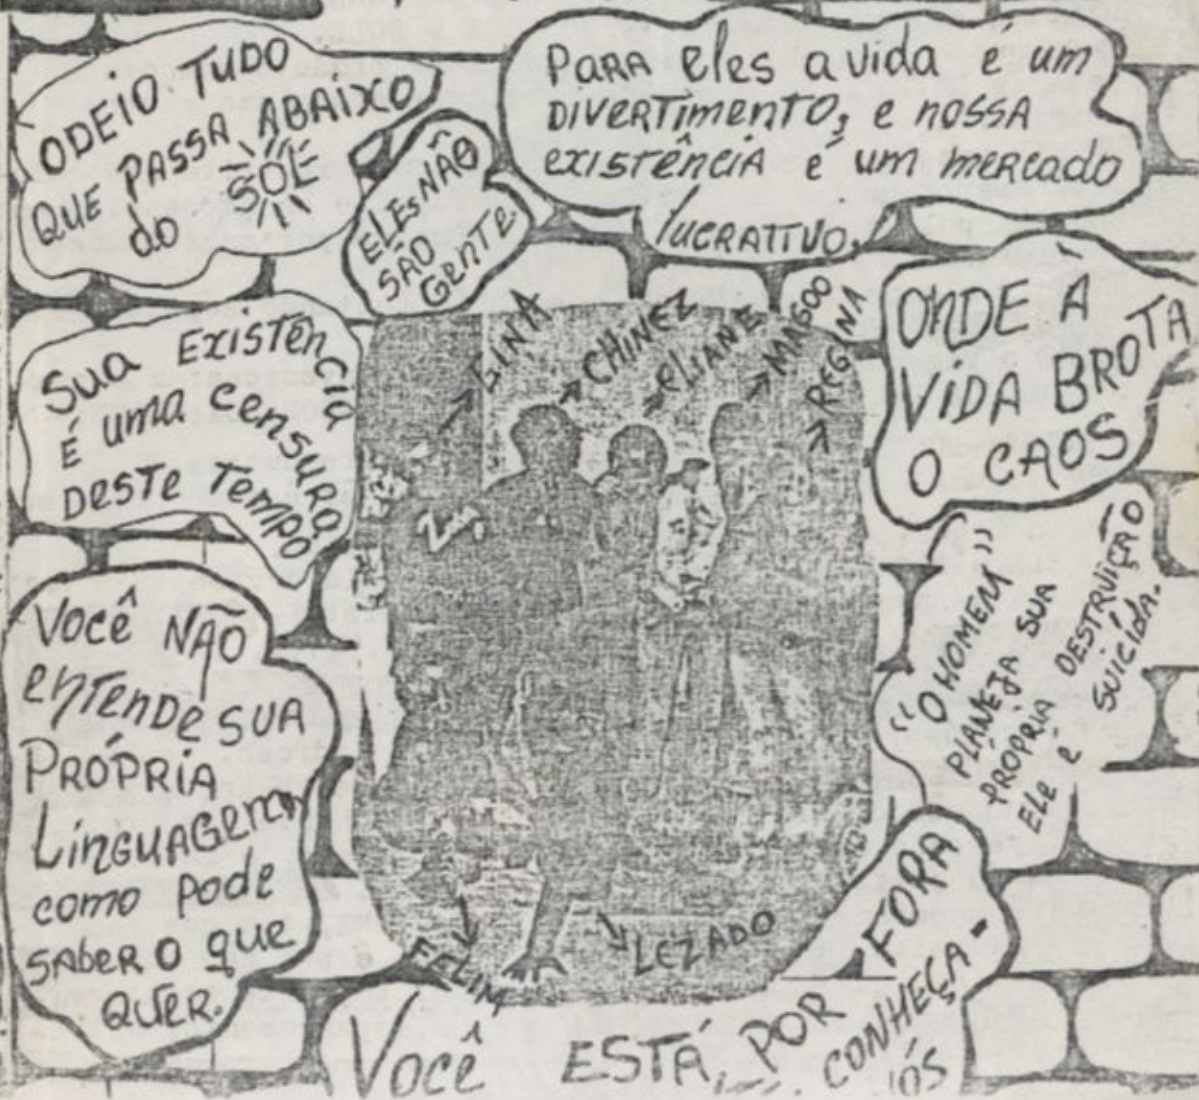 ODEIO TUDO
QUE PASSA ABAIXO
do SOL
ELES NÃO
SÃO
GENTE.
PARA eles a vida é um
DIVERTIMENTO, e nossa
existência é um mercado
lucrattivo.
Sua EXISTÊNCIA
É uma censura
DESTE TEMPO
GINA
CHINEZ
ELIANE
MAGOO
REGINA
ONDE A
VIDA BROTA
O CAOS
Você NÃO
entende SUA
PRÓPRIA
LINGUAGEM
como pode
SABER O que
QUER.
"O HOMEM"
PLANEJA SUA
PRÓPRIA DESTRUIÇÃO
ELE É SUICIDA.
FELIM
LEZADO
Você ESTÁ POR FORA
CONHEÇA-